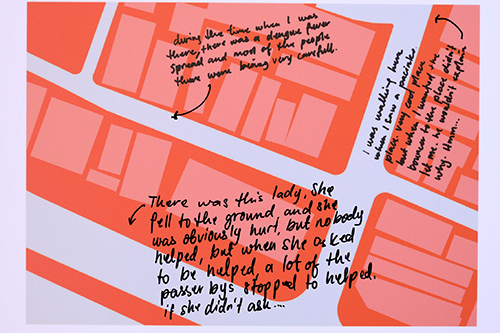 during the time when I was
there, there was a dengue fever
spread and most of the people
there were being very carefull.
I was walking here
when I saw a pacinko
place. very cool place
but when I wanted the
bouncer to the place didn't
let me. it wouldn't explain
why. Hmm...
There was this lady. She
fell to the ground, and she
was obviously hurt, but nobody
helped, but when she asked
to be helped, a lot of the
passer bys stopped to helped.
if she didn't ask...